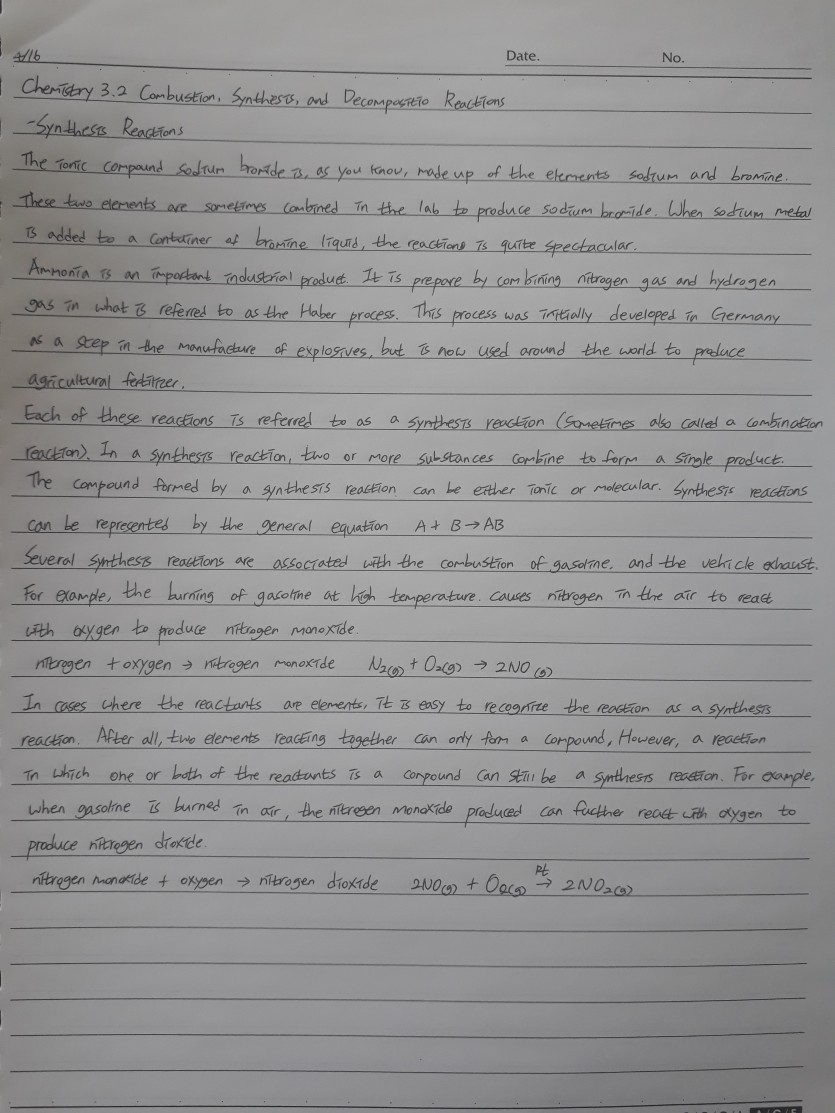 4/16
Date. No.
Chemistry 3.2 Combustion, Synthesis, and Decompositio Reactions
-Synthesis Reactions
The ionic compound sodium bromide is, as you know, made up of the elements sodium and bromine.
These two elements are sometimes combined in the lab to produce sodium bromide. When sodium metal
is added to a container of bromine liquid, the reactions is quite spectacular.
Ammonia is an important industrial product. It is prepare by combining nitrogen gas and hydrogen
gas in what is referred to as the Haber process. This process was initially developed in Germany
as a step in the manufacture of explosives, but is now used around the world to produce
agricultural fertilizer.
Each of these reactions is referred to as a synthesis reaction (sometimes also called a combination
reaction). In a synthesis reaction, two or more substances combine to form a single product.
The compound formed by a synthesis reaction can be either ionic or molecular. Synthesis reactions
can be represented by the general equation A + B → AB
Several synthesis reactions are associated with the combustion of gasoline, and the vehicle exhaust.
For example, the burning of gasoline at high temperature. causes nitrogen in the air to react
with oxygen to produce nitrogen monoxide.
nitrogen + oxygen → nitrogen monoxide N₂(g) + O₂(g) → 2NO (g)
In cases where the reactants are elements, it is easy to recognize the reaction as a synthesis
reaction. After all, two elements reacting together can only form a compound, However, a reaction
in which one or both of the reactants is a compound can still be a synthesis reaction. For example,
when gasoline is burned in air, the nitrogen monoxide produced can further react with oxygen to
produce nitrogen dioxide.
nitrogen monoxide + oxygen → nitrogen dioxide 2NO(g) + O₂(g) Pt → 2NO₂(g)